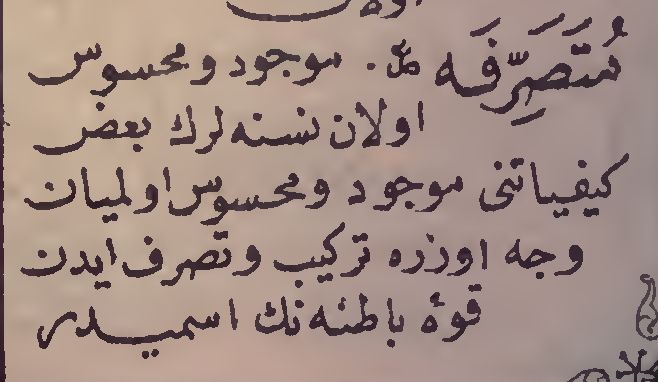 مُتَصَرِّفَه موجود و محسوس
اولان نسنه لرك بعض
كيفياتنى موجود و محسوس اولميان
وجه اوزره تركيب و تصرف ايدن
قوهٔ باطنه نك اسميدر